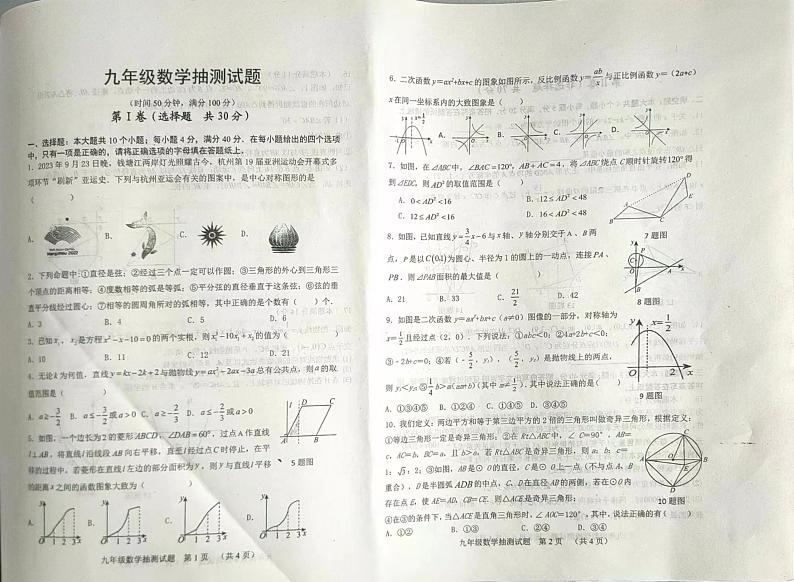 九年级数学抽测试题
（时间 50 分钟，满分 100 分）
第 I 卷（选择题 共 30 分）
一、选择题：本大题共 10 个小题；每小题 4 分，满分 40 分．在每小题给出的四个选项
中，只有一项是正确的，请将正确选项的字母填在答题纸上．
1. 2023 年 9 月 23 日晚，钱塘江两岸灯光照耀古今．杭州第 19 届亚洲运动会开幕式多
项环节“刷新”亚运史．下列与杭州亚运会有关的图案中，是中心对称图形的是
（ ）
A. B. C. D.
2. 下列命题中:①直径是弦；②经过三个点一定可以作圆；③三角形的外心到三角形三
个顶点的距离相等；④度数相等的弧是等弧；⑤平分弦的直径垂直于这条弦；⑥弦的垂
直平分线经过圆心；⑦相等的圆周角所对的弧相等，其中正确的是个数有（ ）个．
A. 3 B. 4 C. 5 D. 6
3. 已知x₁，x₂是方程x²－x－10＝0的两个实根，则x₁³－10x₁＋x₂的值为（ ）
A. 10 B. 11 C. 12 D. 21
4. 无论 k 为何值，直线 y＝kx－2k＋2 与抛物线 y＝ax²－2ax－3a 总有公共点，则 a 的取
值范围是（ ）
A. a≥－2/3 B. a≤－2/3 或 a＞0 C. a≥－2/3 D. a≤－2/3 或 a＞0
5. 如图，一个边长为 2 的菱形 ABCD，∠DAB＝60°，过点 A 作直线
l⊥AB，将直线 l 沿线段 AB 向右平移，直至 l 经过点 C 时停止，在平
移的过程中，若菱形在直线 l 左边的部分面积为 y，则 y 与直线 l 平移
的距离 x 之间的函数图象大致为（ ）
5 题图
A. B. C. D.
九年级数学抽测试题 第 1 页 （共 4 页）
6. 二次函数 y＝ax²+bx+c 的图象如图所示，反比例函数 y＝ab/x 与正比例函数 y＝（2a+c）
x 在同一坐标系内的大致图象是（ ）
A. B. C. D.
7. 如图，在△ABC 中，∠BAC＝120°，AB＋AC＝4，将△ABC 绕点 C 顺时针旋转120°得
到△EDC，则 AD² 的取值范围是（ ）
A. 0＜AD²＜16 B. 12≤AD²＜48
C. 12≤AD²＜16 D. 16≤AD²＜48
7 题图
8. 如图，已知直线 y＝3/4x－6 与 x 轴、y 轴分别交于 A 、B 两
点，P 是以 C(0,1) 为圆心、半径为 1 的圆上的一动点，连接 PA 、
PB．则△PAB面积的最大值是（ ）
A. 21 B. 33 C. 21/2 D. 42
8 题图
9. 如图是二次函数 y＝ax²+bx+c（a≠0）图像的一部分，对称轴为
x＝1/2 且经过点（2，0）．下列说法：①abc＜0；②4a＋2b＋c＜0；
③－2b＋c＝0；④若（－5/2，y₁），（5/2，y₂）是抛物线上的两点，
则 y₁＜y₂；⑤1/4b＞m(am＋b)(其中 m≠1/2)．其中说法正确的是（ ）
A. ①③④⑤ B. ①②④ C. ①④⑤ D. ③④⑤
9 题图
10. 我们定义：两边平方和等于第三边平方的 2 倍的三角形叫做奇异三角形，根据定义：
①等边三角形一定是奇异三角形；②在 Rt△ABC 中，∠C＝90°，AB＝
c，AC＝b，BC＝a，且 b＞a，若 Rt△ABC 是奇异三角形，则 a：b：c＝
1：√3：2；③如图，AB 是⊙O 的直径，C 是⊙O 上一点（不与点 A、B
重合），D 是半圆弧 ADB 的中点，C、D 在直径 AB 的两侧，若在⊙O 内
存在点 E，使 AE＝AD，CB＝CE．则△ACE 是奇异三角形；
④在③的条件下，当△ACE 是直角三角形时，∠AOC＝120°，其中，说法正确的有（ ）
A. ①② B. ①③ C. ②④ D. ③④
10 题图
九年级数学抽测试题 第 2 页 （共 4 页）